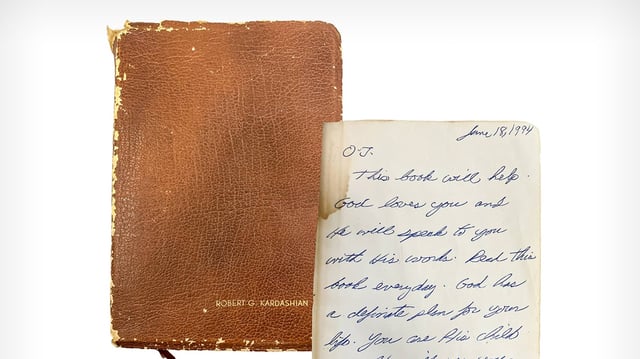 ROBERT G. KARDASHIAN
June 18, 1994
O.J.
This book will help.
God loves you and
He will speak to you
with His words. Read this
book everyday. God has
a definite plan for your
life. You are His child